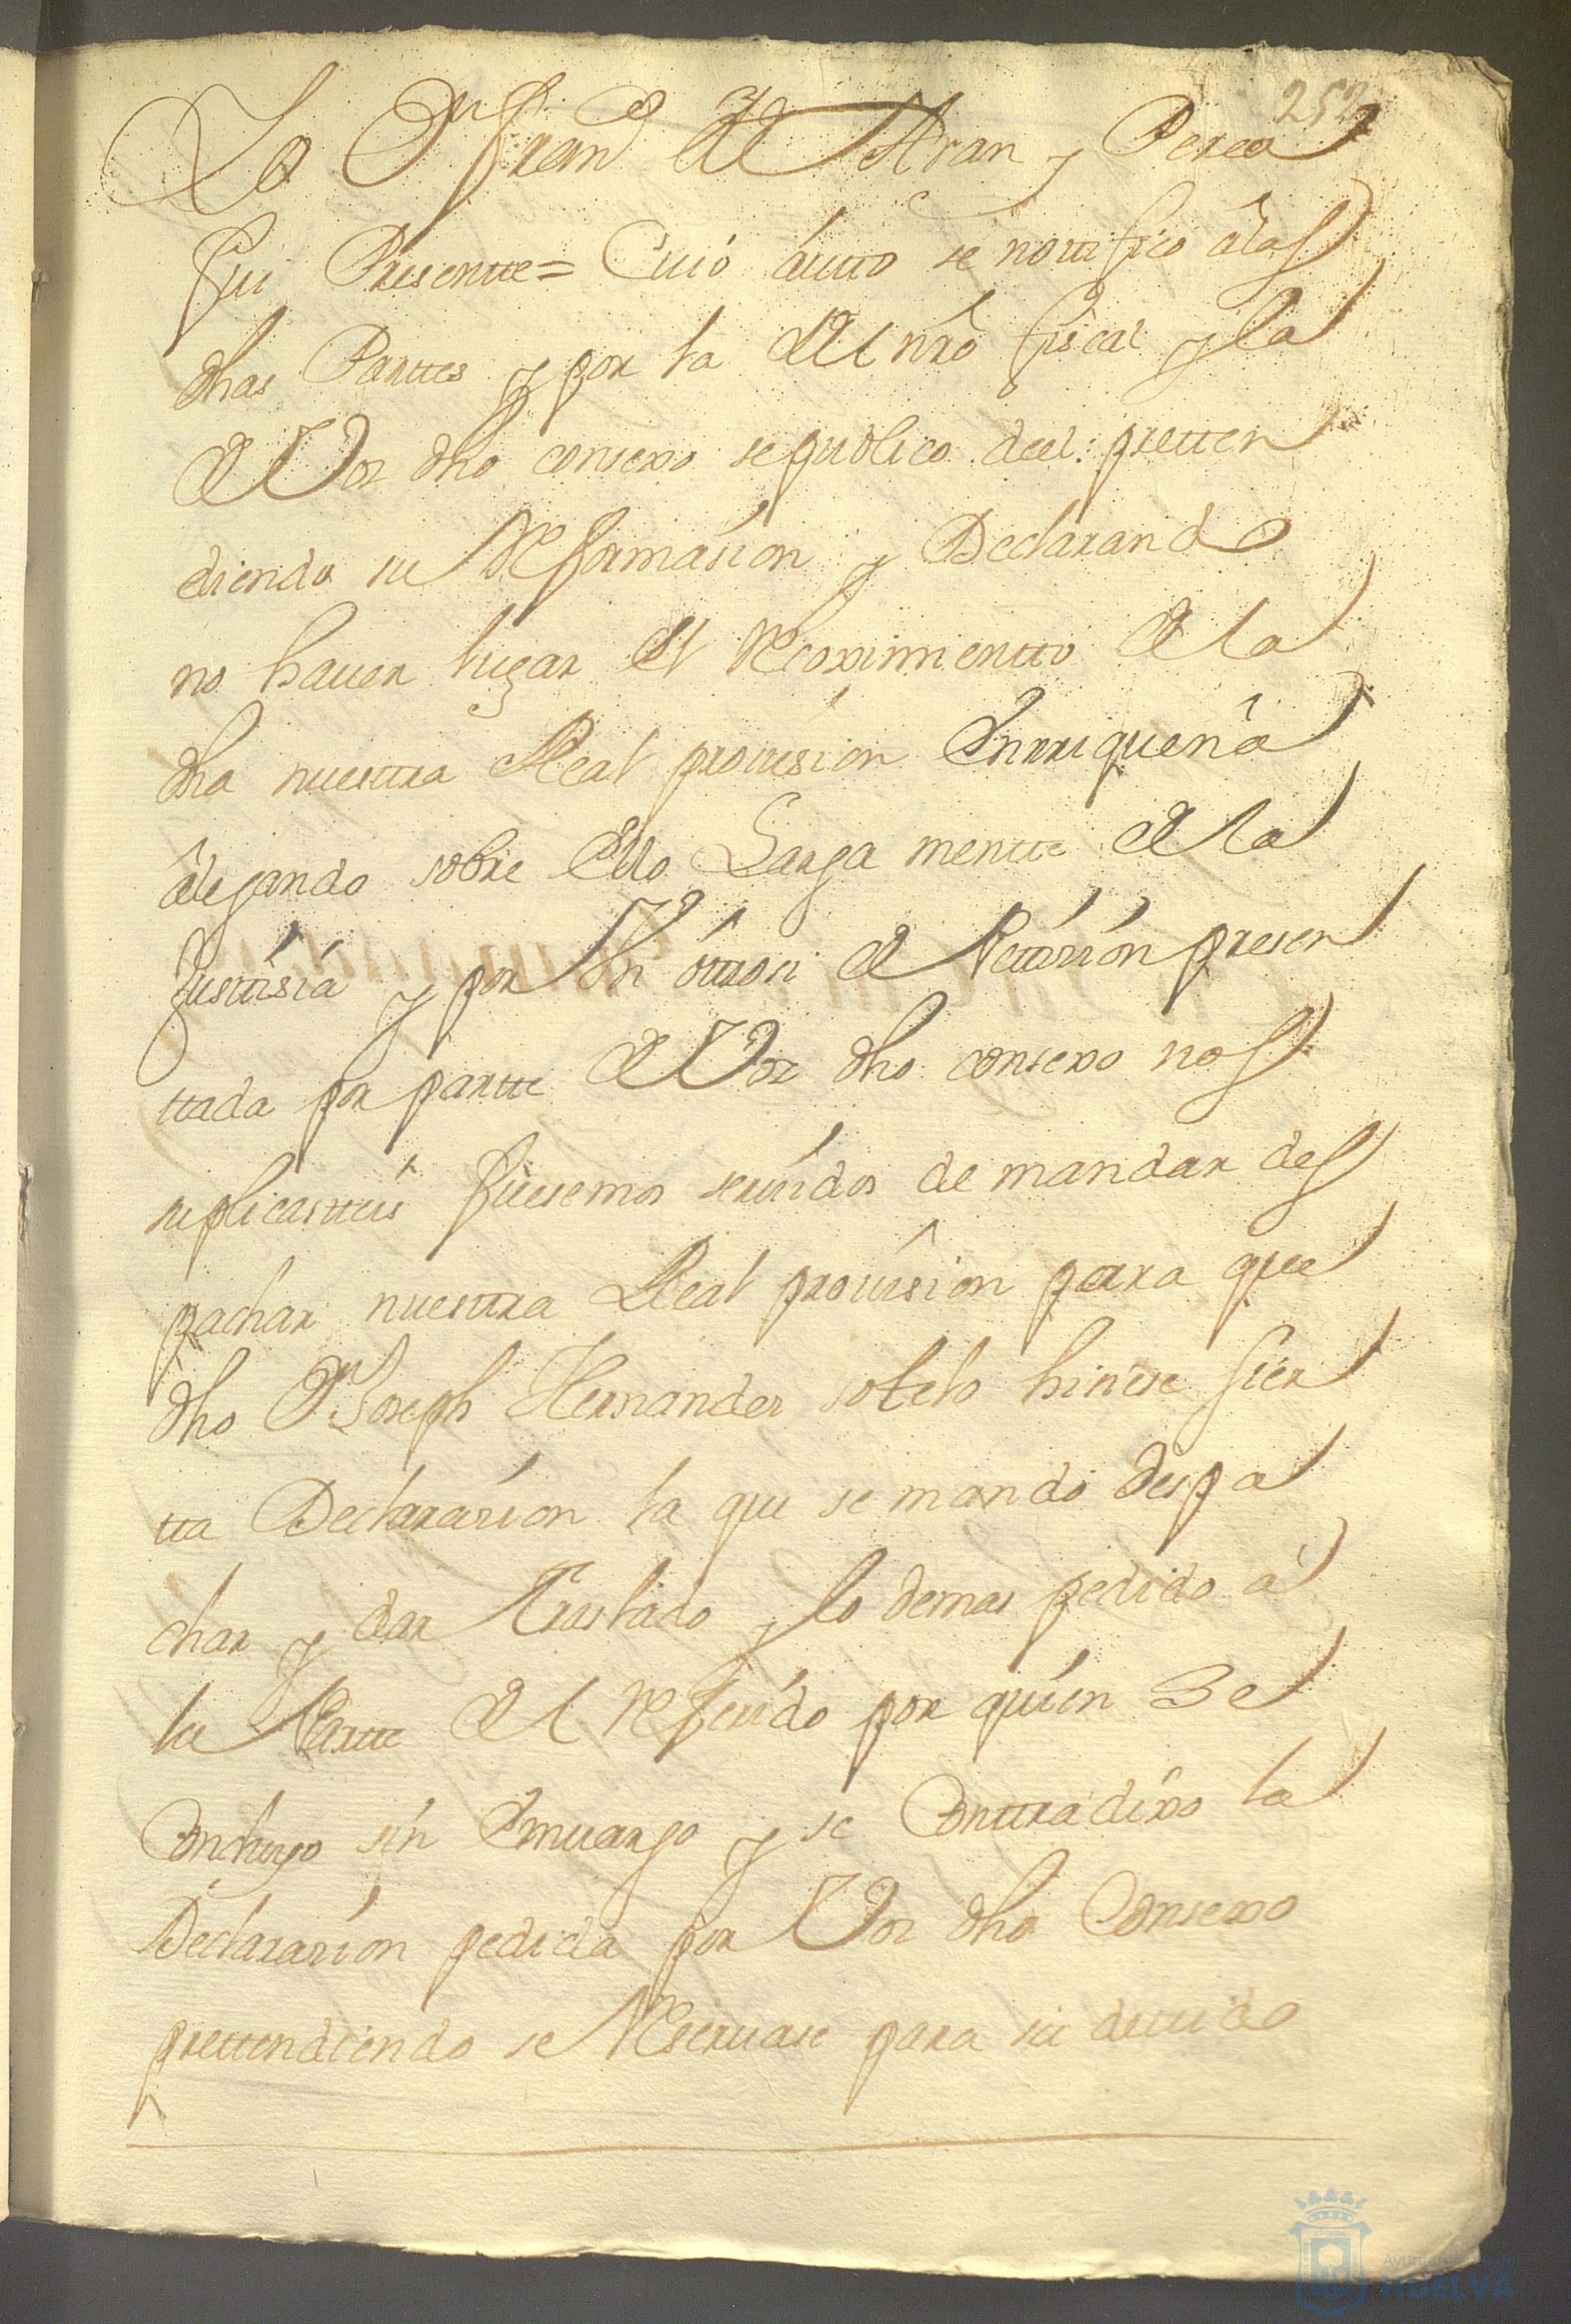 252
Yo Dn Franco del Aran y Perea
fui Presentte = Cuió áutto se nottifico á las
dhas Parttes y por la del nro fiscal y la
de Vos dho consexo se suplico deel: pretten
diendo su Reformásion y Declarando
no hauer lugar el Recoximientto de la
dha nuesttra Real prouision Enrriqueña
álegando sobre Ello Largamentte de la
Justtisiá y por Vn óttrosi de Pettásion presen
ttada por partte de Vos dho consexo nos
suplicastteis fuesemos seruidos de mandar des
pachar nuesttra Real prouision para que
dho Dn Joseph Hernandez sotelo hiciese sier
tta Declarasion la que se mandó despa
char y dar Traslado y lo demas pedido á
la Partte del Referido por quien se
Concluyo sin Emuargo y se Conttradixo la
Declarasion pedida por Vos dho Consexo
prettendiendo se Reseruase para su deuido
Ayuntamiento de
HUELVA